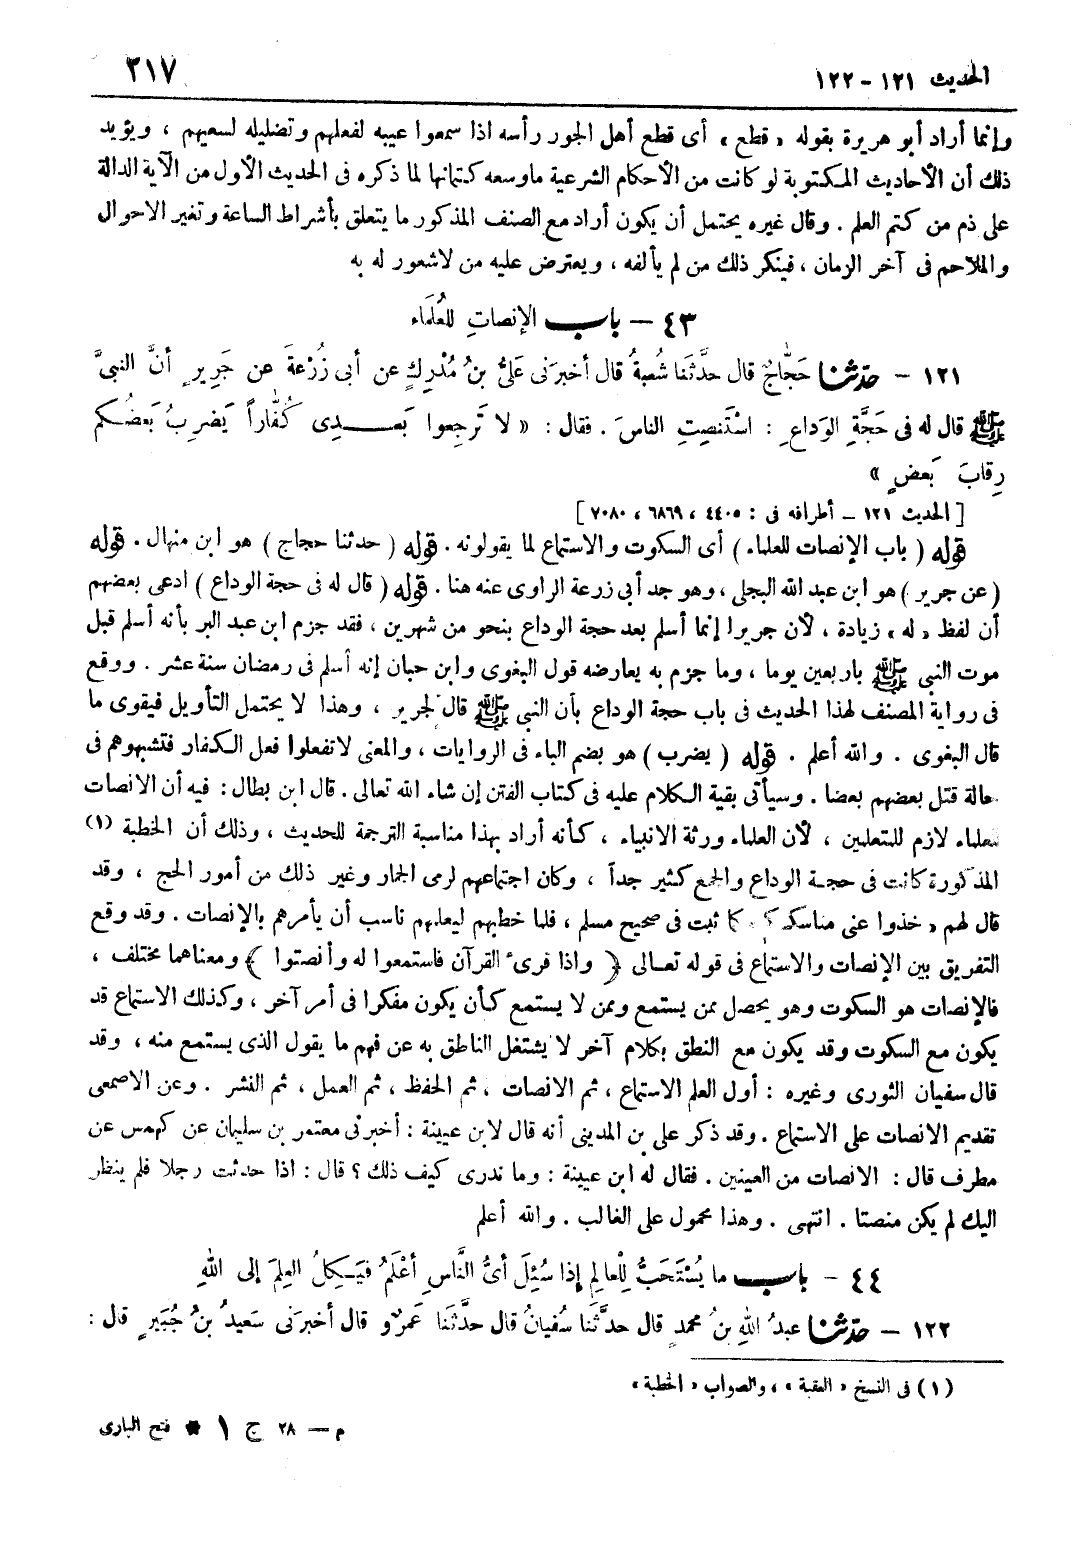 الحديث ١٢١ - ١٢٢
٢١٧
وإنما أراد أبو هريرة بقوله « قطع » أى قطع أهل الجور رأسه اذا سمعوا عيبه لفعلهم وتضليله لسعيهم ، ويؤيد
ذلك أن الأحاديث المكتوبة لو كانت من الأحكام الشرعية ماوسعه كتمانها لما ذكره فى الحديث الأول من الآية الدالة
على ذم من كتم العلم . وقال غيره يحتمل أن يكون أراد مع الصنف المذكور ما يتعلق بأشراط الساعة وتغير الاحوال
والملاحم فى آخر الزمان ، فينكر ذلك من لم يألفه ، ويعترض عليه من لاشعور له به
٤٣ - باب الإنصاتِ للعُلَمَاء
١٢١ - حدّثنا حَجّاجٌ قال حدَّثَنا شُعبةُ قال أخبرَنى عَلىُّ بنُ مُدْرِكٍ عن أبى زُرْعةَ عن جَرِيرٍ أنَّ النبىَّ
ﷺ قال له فى حَجَّةِ الوَداعِ : اسْتَنصِتِ الناسَ . فقال : « لا تَرجِعوا بَعـدِى كُفّاراً يَضرِبُ بَعضُكم
رِقابَ بَعضٍ »
[ الحديث ١٢١ - أطرافه فى : ٤٤٠٥ ، ٦٨٦٩ ، ٧٠٨٠ ]
قوله ( باب الإنصات للعلماء ) أى السكوت والاستماع لما يقولونه . قوله ( حدثنا حجاج ) هو ابن منهال . قوله
( عن جرير ) هو ابن عبد الله البجلى ، وهو جد أبى زرعة الراوى عنه هنا . قوله ( قال له فى حجة الوداع ) ادعى بعضهم
أن لفظ « له » زيادة ، لأن جريرا إنما أسلم بعد حجة الوداع بنحو من شهرين ، فقد جزم ابن عبد البر بأنه أسلم قبل
موت النبى ﷺ باربعين يوما ، وما جزم به يعارضه قول البغوى وابن حبان إنه أسلم فى رمضان سنة عشر . ووقع
فى رواية المصنف لهذا الحديث فى باب حجة الوداع بأن النبى ﷺ قال لجرير ، وهذا لا يحتمل التأويل فيقوى ما
قال البغوى . والله أعلم . قوله ( يضرب ) هو بضم الباء فى الروايات ، والمعنى لاتفعلوا فعل الكفار فتشبهوهم فى
حالة قتل بعضهم بعضا . وسيأتى بقية الكلام عليه فى كتاب الفتن إن شاء الله تعالى . قال ابن بطال : فيه أن الانصات
للعلماء لازم للمتعلمين ، لأن العلماء ورثة الانبياء ، كأنه أراد بهذا مناسبة الترجمة للحديث ، وذلك أن الخطبة (١)
المذكورة كانت فى حجة الوداع والجمع كثير جداً ، وكان اجتماعهم لرمى الجمار وغير ذلك من أمور الحج ، وقد
قال لهم « خذوا عنى مناسككم » كما ثبت فى صحيح مسلم ، فلما خطبهم ليعلمهم ناسب أن يأمرهم بالإنصات . وقد وقع
التفريق بين الإنصات والاستماع فى قوله تعـالى ﴿ واذا قرىء القرآن فاستمعوا له وأنصتوا ﴾ ومعناهما مختلف ،
فالإنصات هو السكوت وهو يحصل ممن يستمع وممن لا يستمع كأن يكون مفكرا فى أمر آخر ، وكذلك الاستماع قد
يكون مع السكوت وقد يكون مع النطق بكلام آخر لا يشتغل الناطق به عن فهم ما يقول الذى يستمع منه ، وقد
قال سفيان الثورى وغيره : أول العلم الاستماع ، ثم الانصات ، ثم الحفظ ، ثم العمل ، ثم النشر . وعن الاصمعى
تقديم الانصات على الاستماع . وقد ذكر على بن المدينى أنه قال لابن عيينة : أخبرنى معتمر بن سليمان عن كهمس عن
مطرف قال : الانصات من العينين . فقال له ابن عيينة : وما ندرى كيف ذلك ؟ قال : اذا حدثت رجلا فلم ينظر
اليك لم يكن منصتا . انتهى . وهذا محمول على الغالب . والله أعلم
٤٤ - باب ما يُسْتَحَبُّ لِلْعالِمِ إذا سُئِلَ أىُّ النَّاسِ أعْلَمُ فيَـكِلُ العِلمَ إلى اللهِ
١٢٢ - حدّثنا عبدُ اللهِ بنُ محمدٍ قال حدَّثَنا سُفيانُ قال حدَّثَنا عَمرٌو قال أخبرَنى سَعيدُ بنُ جُبَيرٍ قال :
(١) فى النسخ « العقبة » ، والصواب « الخطبة »
م - ٢٨ ج ١ * فتح البارى